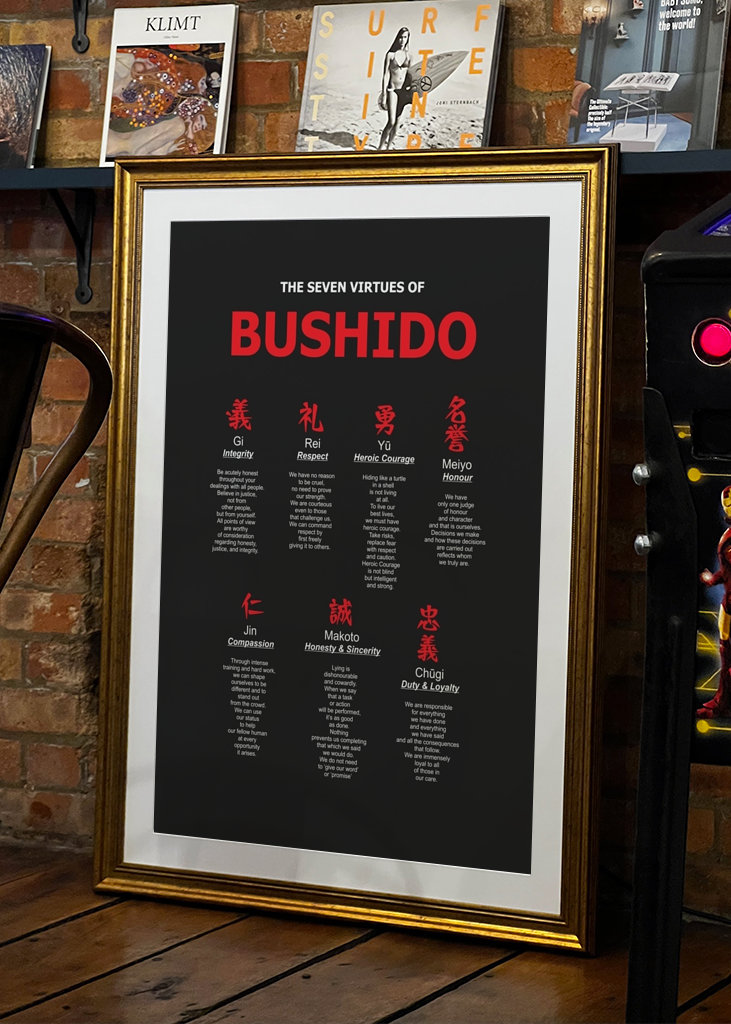 KLIMT
SURF
SITE
IN
TYPE
JONI STERNBACH
BABY SUMO,
welcome to
the world!
The Ultimate
Collectible:
precisely half
the size of
the legendary
original.
THE SEVEN VIRTUES OF
BUSHIDO
義
Gi
Integrity
Be acutely honest
throughout your
dealings with all people.
Believe in justice,
not from
other people,
but from yourself.
All points of view
are worthy
of consideration
regarding honesty,
justice, and integrity.
礼
Rei
Respect
We have no reason
to be cruel.
no need to prove
our strength.
We are courteous
even to those
that challenge us.
We can command
respect by
first freely
giving it to others.
勇
Yū
Heroic Courage
Hiding like a turtle
in a shell
is not living
at all.
To live our
best lives,
we must have
heroic courage.
Take risks,
replace fear
with respect
and caution.
Heroic Courage
is not blind
but intelligent
and strong.
名
誉
Meiyo
Honour
We have
only one judge
of honour
and character
and that is ourselves.
Decisions we make
and how these decisions
are carried out
reflects whom
we truly are.
仁
Jin
Compassion
Through intense
training and hard work,
we can shape
ourselves to be
different and to
stand out
from the crowd.
We can use
our status
to help
our fellow human
at every
opportunity
it arises.
誠
Makoto
Honesty & Sincerity
Lying is
dishonourable
and cowardly.
When we say
that a task
or action
will be performed,
it's as good
as done.
Nothing
prevents us completing
that which we said
we would do.
We do not need
to 'give our word'
or 'promise'
忠
義
Chūgi
Duty & Loyalty
We are responsible
for everything
we have done
and everything
we have said
and all the consequences
that follow.
We are immensely
loyal to all
of those in
our care.